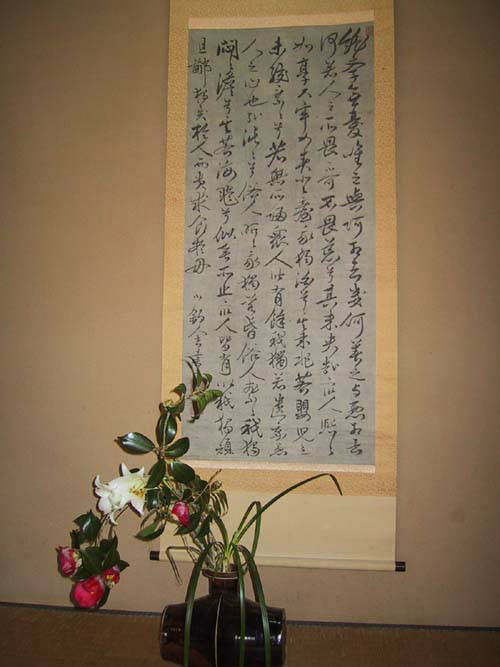 絶学無憂唯之與阿相去幾何善之与悪相去
何若人之所畏不可不畏荒兮其未央哉衆人熙々
如享大牢如春登臺我獨泊兮其未兆若嬰兒之
未孩乗々兮若無所歸衆人皆有餘我獨若遺我愚
人之心也哉沌々兮俗人昭々我獨若昏俗人察々我獨
悶々澹兮其若海飂兮似無所止衆人皆有以我獨頑
且鄙独異於人而貴求食於母